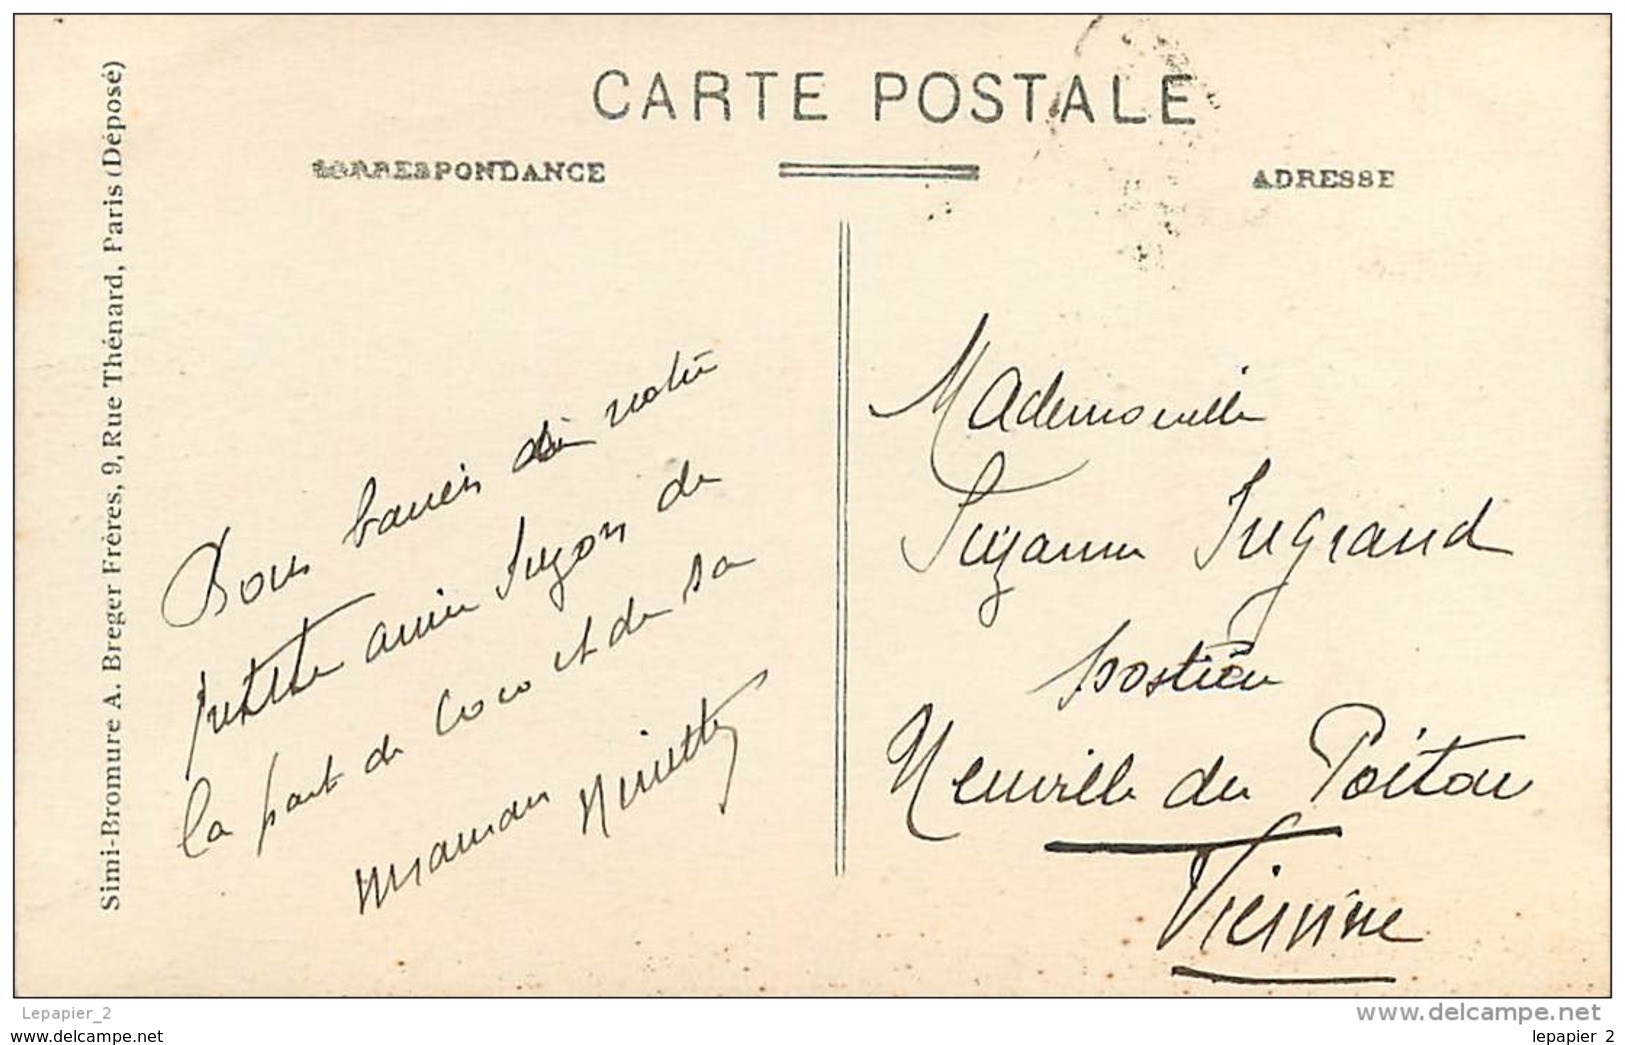 CARTE POSTALE
CORRESPONDANCE
ADRESSE
Simi-Bromure A. Breger Frères, 9, Rue Thénard, Paris (Déposé)
Bons baisers de notre
petite amie Suzon de
la part de Coco et de sa
maman Ninette
Mademoiselle
Suzanne Ingrand
postière
Neuville du Poitou
Vienne
Lepapier_2
www.delcampe.net
lepapier_2
lepapier_2